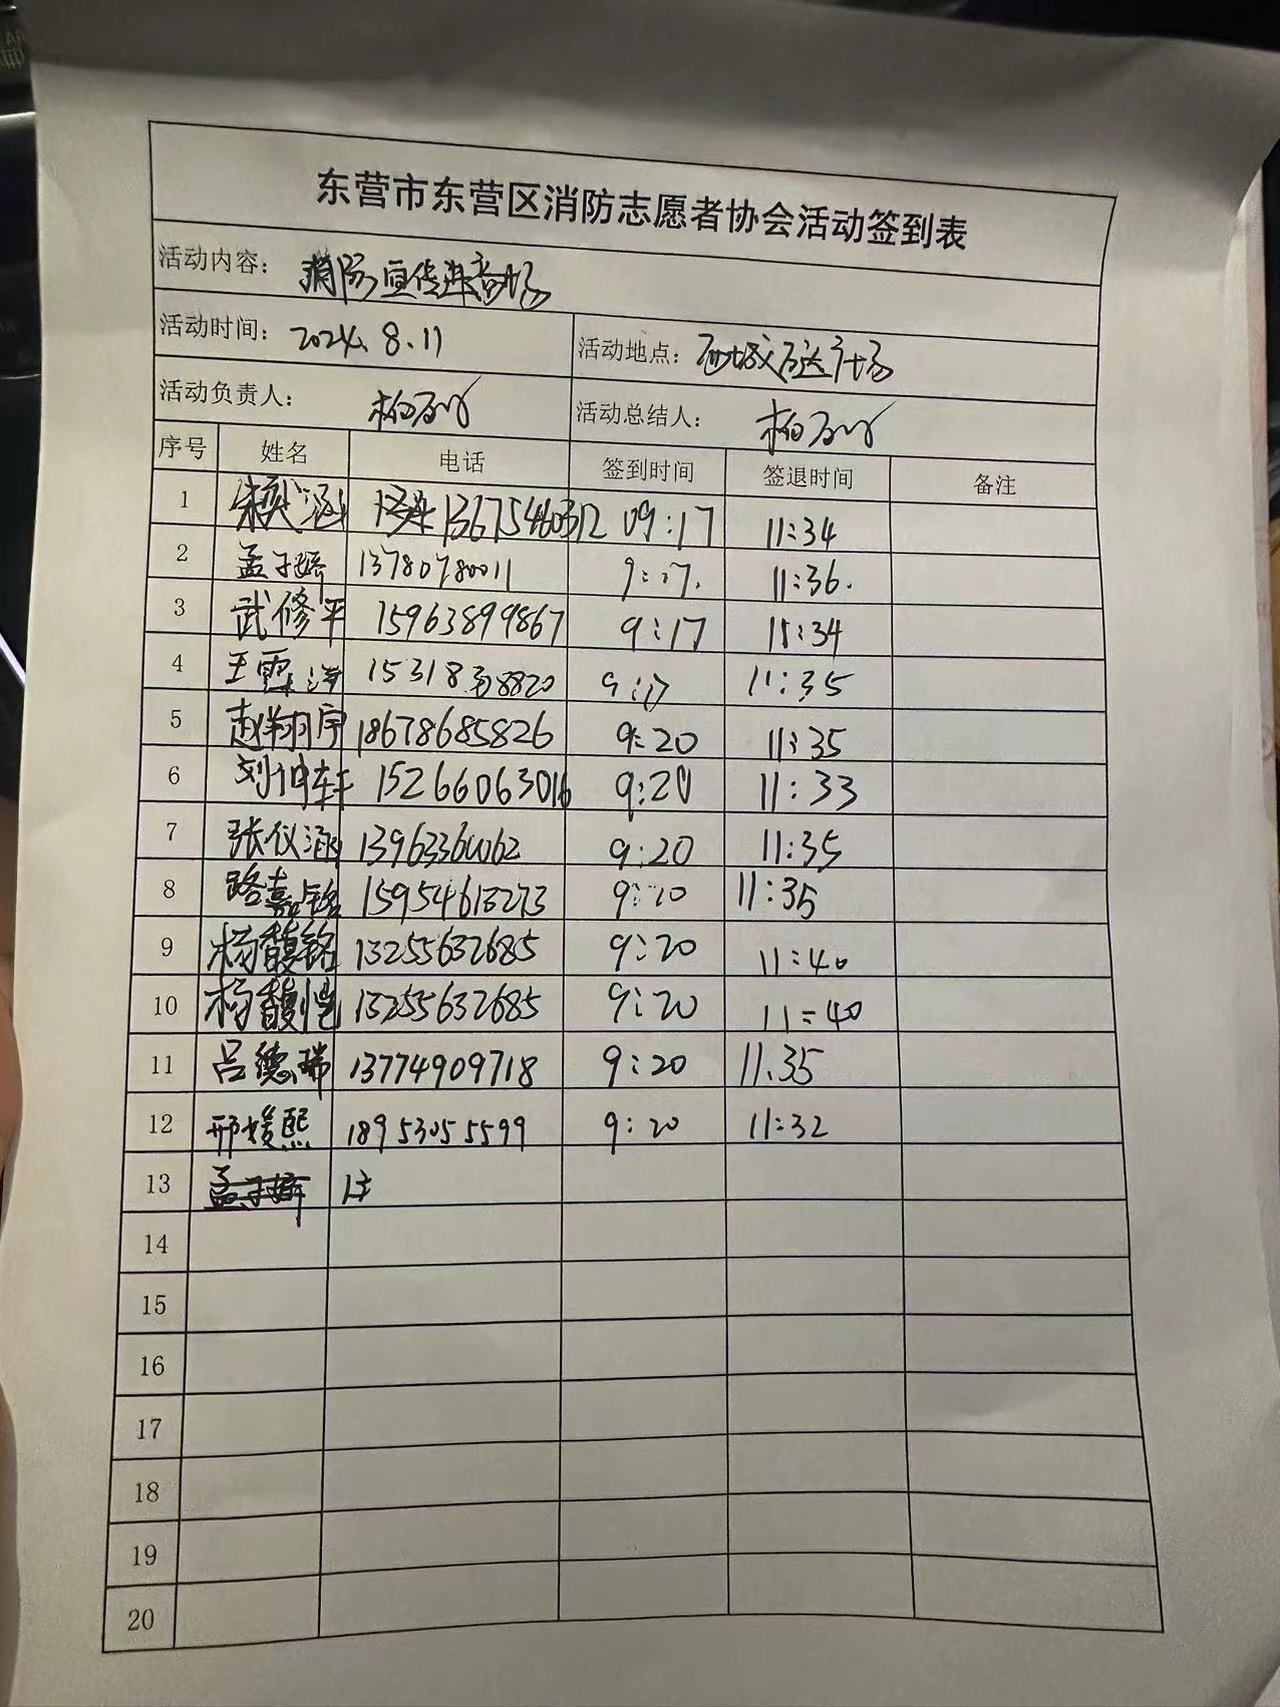 东营市东营区消防志愿者协会活动签到表
活动内容： 消防宣传进商场
活动时间： 2024.8.11 活动地点： 西城 广场
活动负责人： 活动总结人：
序号 姓名 电话 签到时间 签退时间 备注
1 涵 13675460312 09:17 11:34
2 孟子 13780780011 9:17. 11:36.
3 武修平 15963899867 9:17 11:34
4 王霖 9:17 11:35
5 赵翔宇 18678685826 9:20 11:35
6 刘仲轩 15266063016 9:20 11:33
7 张仪涵 9:20 11:35
8 路嘉铭 15954613273 9:20 11:35
9 杨馥铭 13255632685 9:20 11:40
10 杨馥恺 13255632685 9:20 11:40
11 吕德瑞 13774909718 9:20 11.35
12 邢媛熙 18953055599 9:20 11:32
13
14
15
16
17
18
19
20